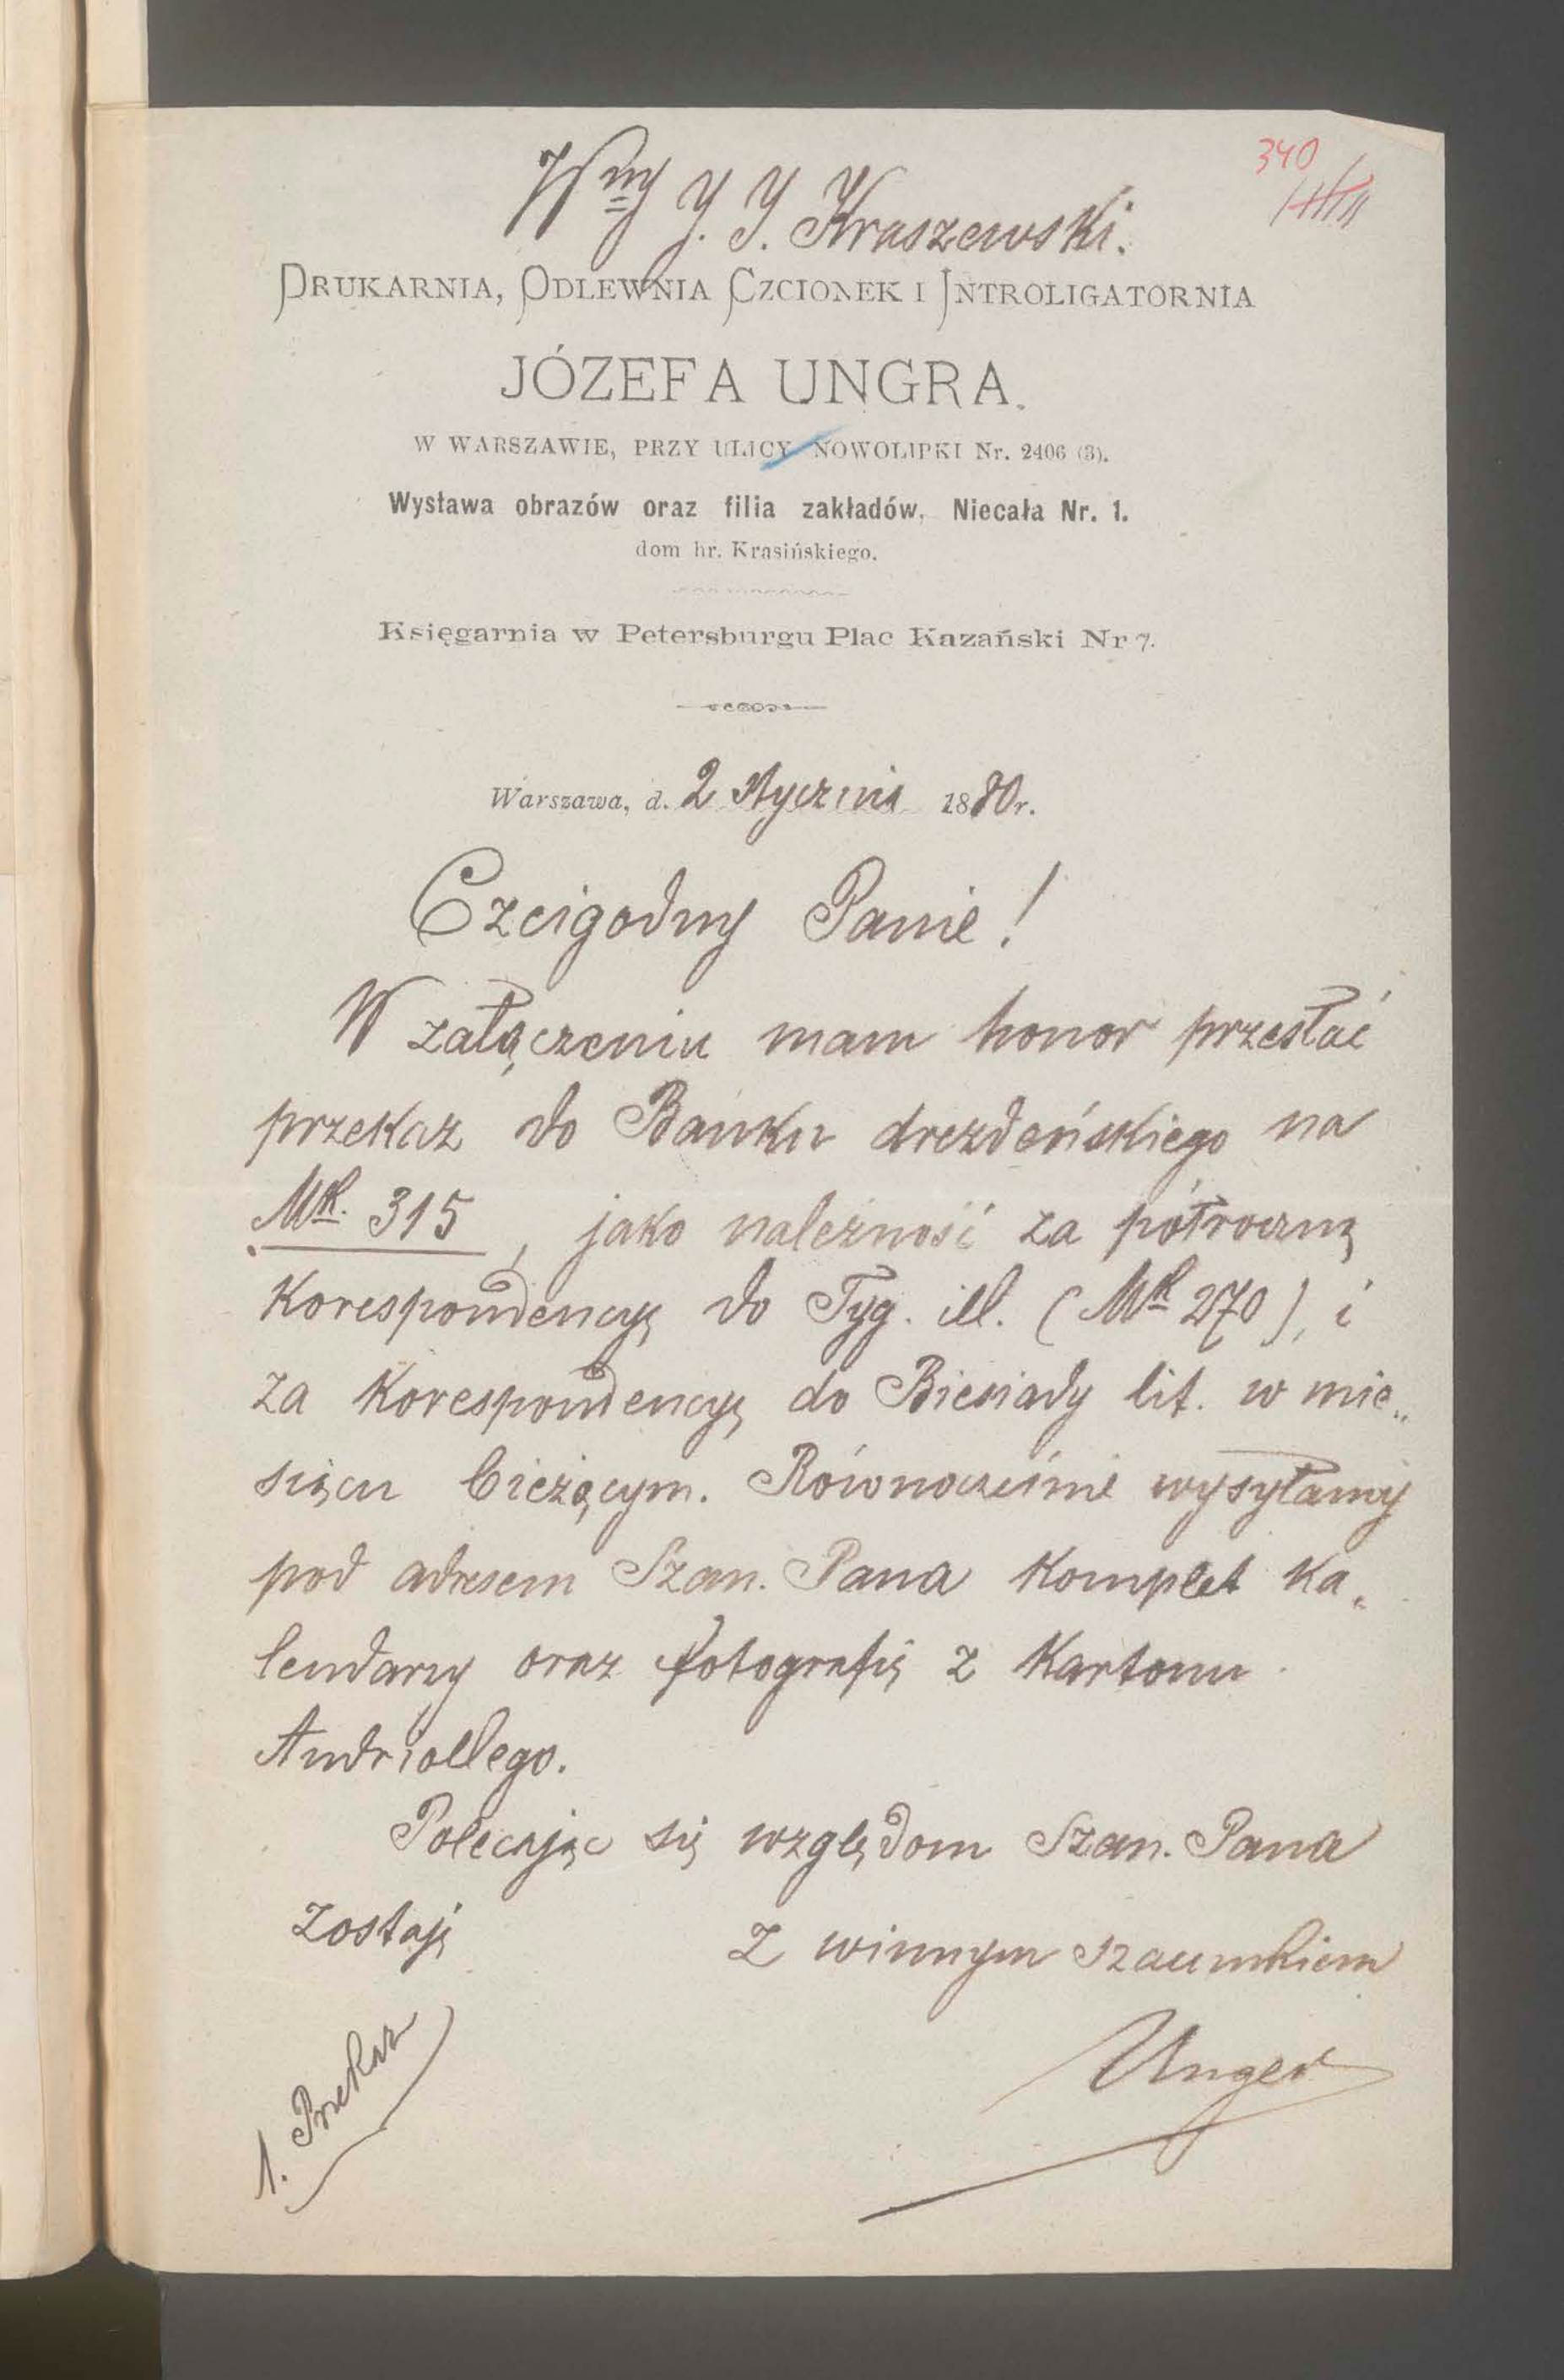 340
Wny J. I. Kraszewski.
DRUKARNIA, ODLEWNIA CZCIONEK I INTROLIGATORNIA
JÓZEFA UNGRA.
W WARSZAWIE, PRZY ULICY NOWOLIPKI Nr. 2406 (3).
Wystawa obrazów oraz filia zakładów. Niecała Nr. 1.
dom hr. Krasińskiego.
Księgarnia w Petersburgu Plac Kazański Nr 7.
Warszawa, d. 2 Stycznia 1880r.
Czcigodny Panie!
W załączeniu mam honor przesłać
przekaz do Banku drezdeńskiego na
Mk. 315, jako należność za półroczną
Korespondencyę do Tyg. ill. (Mk 270), i
za Korespondencyę do Biesiady lit. w mie„
siącu bieżącym. Równocześnie wysyłamy
pod adresem Szan. Pana Komplet Ka„
lendarzy oraz fotografię z Kartonu
Andriollego.
Polecając się względom Szan. Pana
zostaję
z winnym szacunkiem
Unger
1. Przekaz